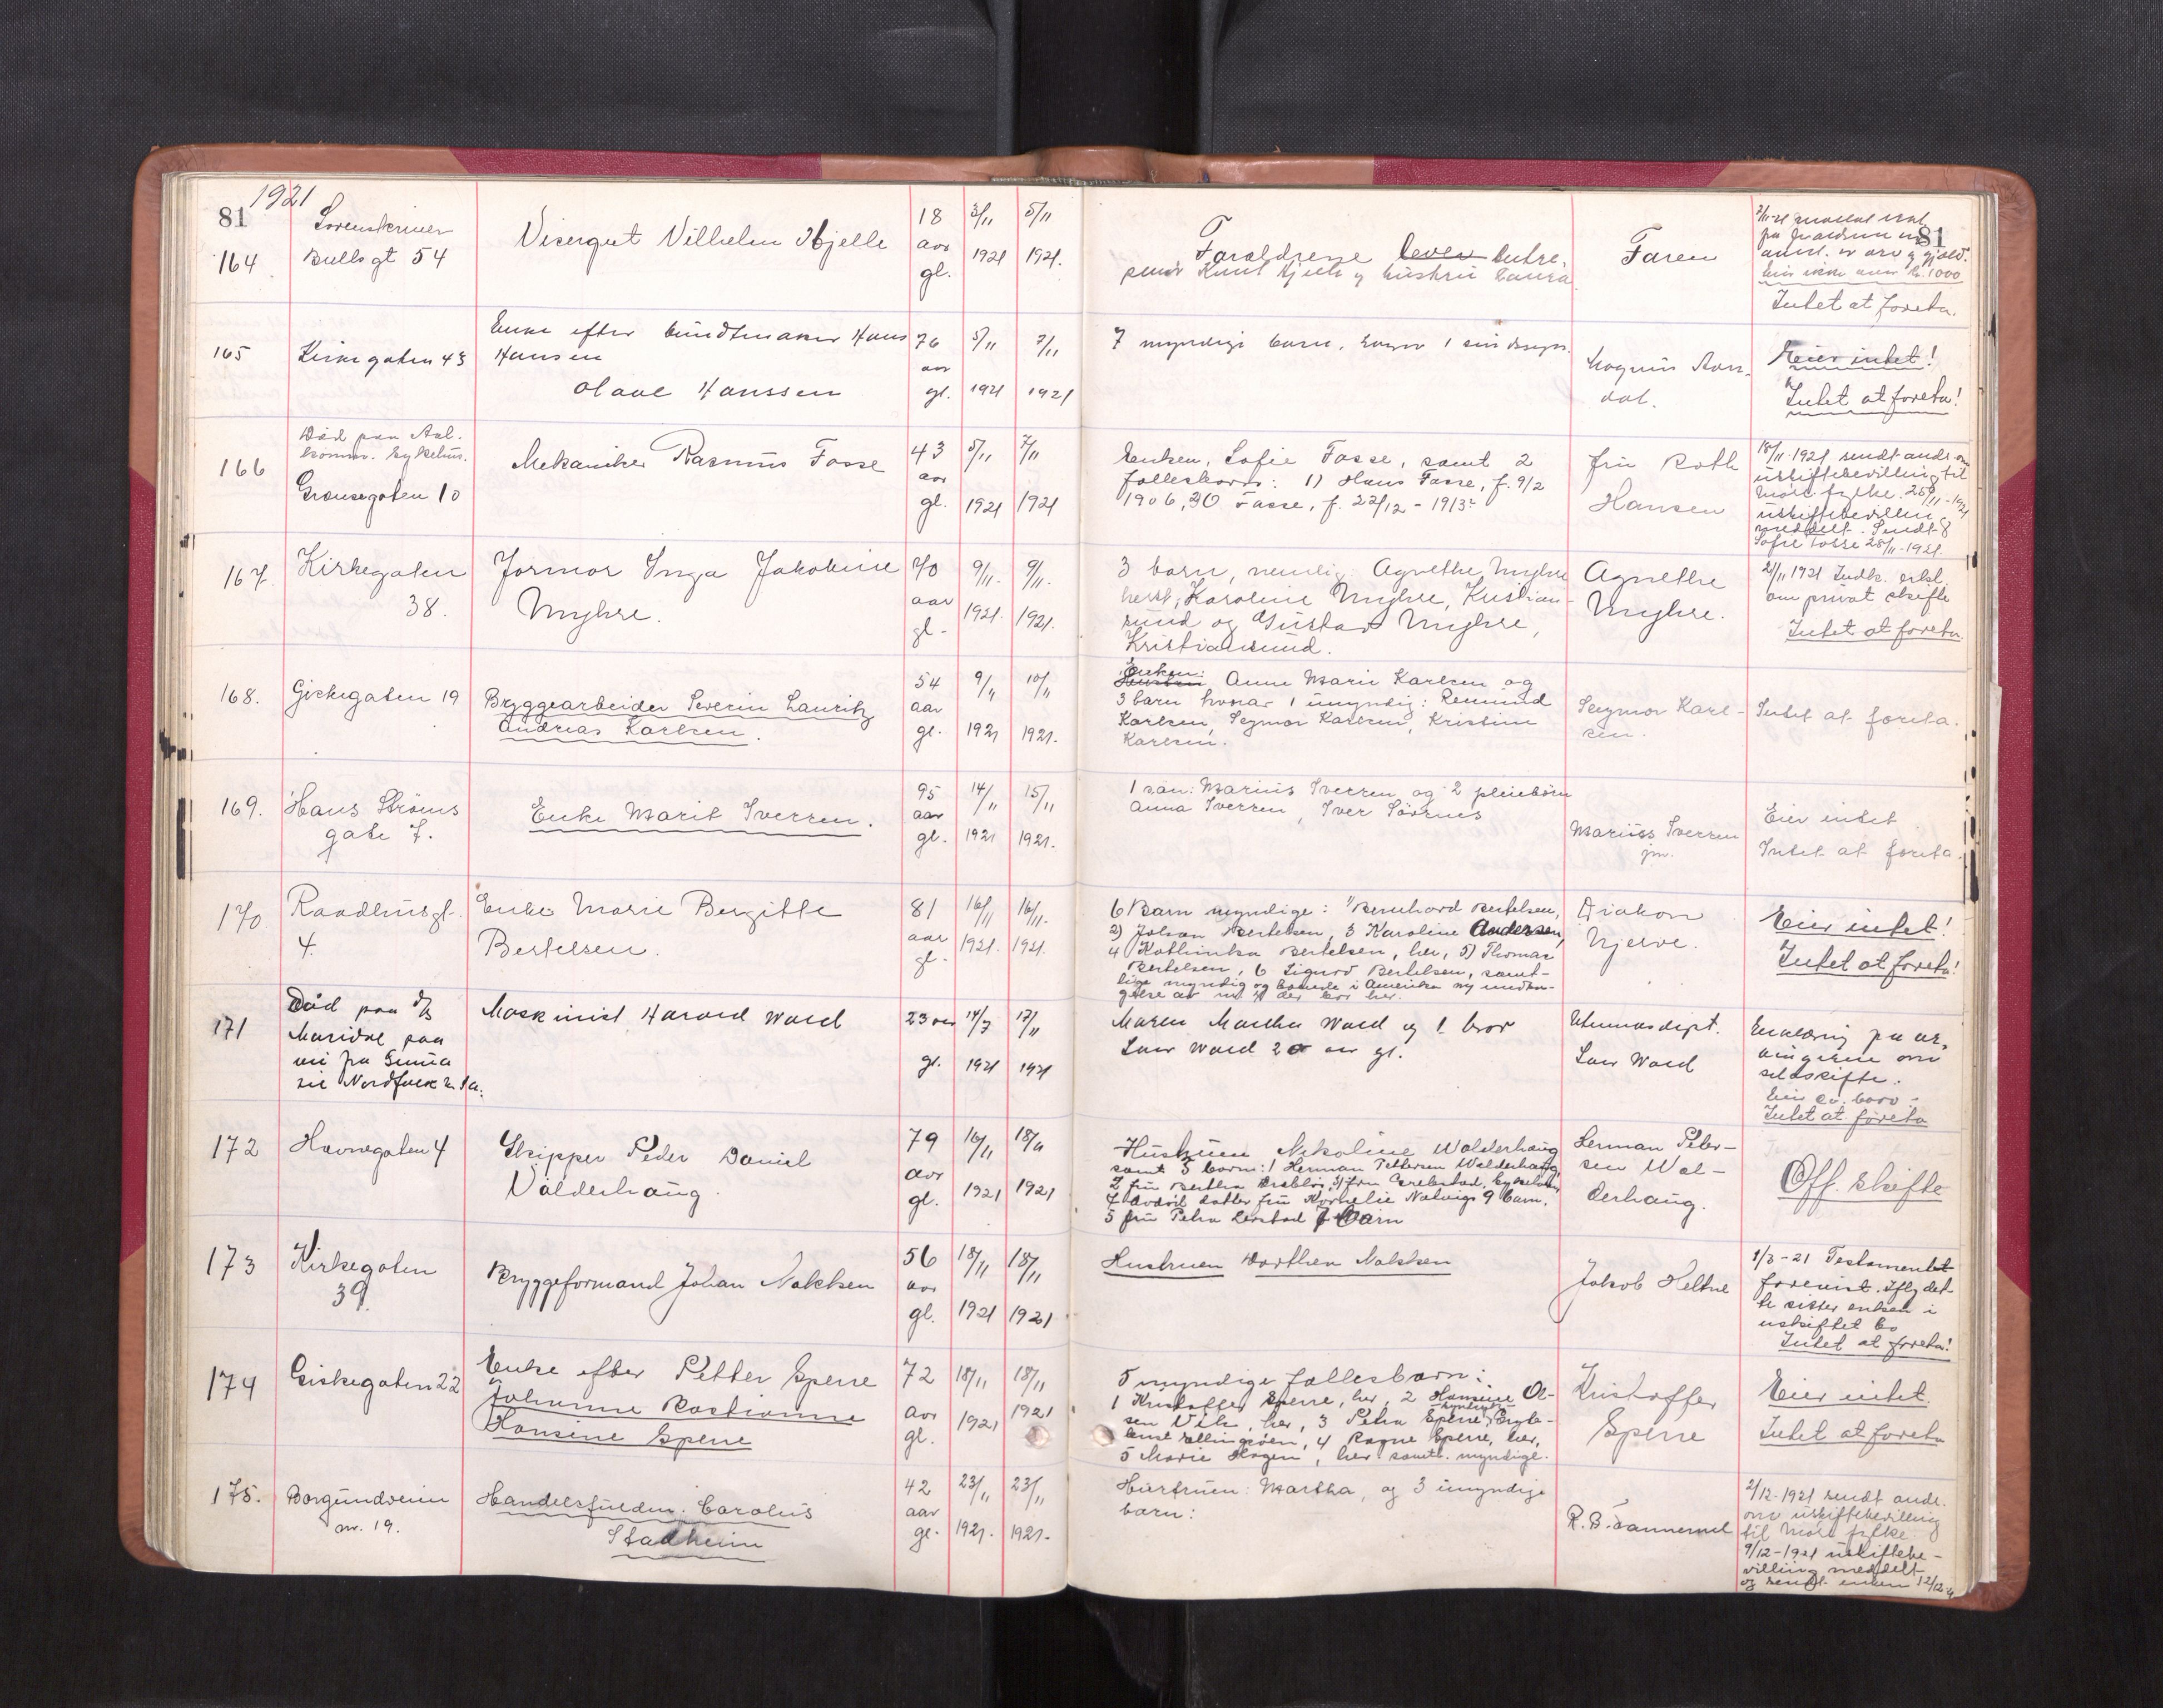 81 1921 81
164 Sorenskriver
Bulls gt 54
Visergut Vilhelm Hjelle
18 aar gl.
3/11 1921
5/11 1921.
Foreldrene lever
Knut Hjelle og hustru Laura
Faren
Intet at foreta.
165 Kirkegaten 43
Enke efter bundtmaker Hans
Hansen
Olave Hanssen
76 aar gl.
5/11 1921
7/11 1921
7 myndige barn, 1 sindssyk.
Eier intet!
Intet at foreta!
166 Død paa Aal.
kommr. sykehus.
Grensegaten 10
Mekaniker Rasmus Fosse
43 aar gl.
5/11 1921
7/11 1921
Enken, Sofie Fosse, samt 2
fellesbarn: 1) Hans Fosse, f. 9/2
1906, Fosse, f. 22/12 - 1913
fru Roth
Hansen
18/11-1921 sendt andr. om
uskiftebevilling til
Møre fylke. 25/11-1921
uskiftebevilling
meddelt. Sendt
Sofie Fosse 28/11-1921.
167. Kirkegaten
38.
Jormor Inga Jakobine
Myhre.
70 aar gl.
9/11. 1921.
9/11. 1921.
3 barn, nemlig: Agnethe Myhre
herst, Karoline Myhre, Kristian-
sund og Gustav Myhre,
Kristiansund.
Agnethe
Myhre.
21/11 1921 Indk. erkl.
om privat skifte
Intet at foreta.
168. Giskegaten 19
Bryggearbeider Severin Lauritz
Andreas Karlsen.
54 aar gl.
9/11 1921
10/11 1921.
Enken:
Anne Marie Karlsen og
3 barn hvorav 1 umyndig: Remind
Karlsen, Segmor Karlsen, Kristine
Karlsen.
Segmor Karl-
sen.
Intet at foreta.
169. Hans Strøms
gate 7.
Enke Marit Iversen.
95 aar gl.
14/11 1921
15/11 1921.
1 søn: Marius Iversen og 2 pleiebørn
Anna Iversen, Iver Sörnes
Marius Iversen
jnr.
Eier intet
Intet at foreta.
170. Raadhusgt.
4.
Enke Marie Bergitte
Bertelsen.
81 aar gl.
16/11 1921.
16/11. 1921.
6 Barn myndige: 1) Bernhard Bertelsen,
2) Johan Bertelsen, 3 Karoline Andersen,
4 Kathinka Bertelsen, her, 5) Thomas
Bertelsen, 6 Sigurd Bertelsen, samt-
lige myndig og boende i Amerika undta-
gelse av nr 4 der bor her.
Diakon
Njerve.
Eier intet!
Intet at foreta!
171 Død paa d/s
Maridal paa
vei fra
Nordfolk U.S.A.
Maskinist Harald Wold
23 aar gl.
14/7 1921
17/11 1921
Maren Martha Wold og 1 bror
Lars Wold 20 aar gl.
Lars Wold
Erklæring paa ar-
vingerne om
selvskifte.
Intet at foreta
172 Havnegaten 4
Skipper Peder Daniel
Valderhaug.
79 aar gl.
16/11 1921
18/11 1921
Hustruen Nikoline Walderhaug
samt 5 barn: 1 Herman Pettersen Walderhaug,
5 fru Petra Lerstad 7 Barn
Herman Peter-
sen Wal-
derhaug.
Off. skifte
173 Kirkegaten
39.
Bryggeformand Johan Nakken
56 aar gl.
18/11 1921
18/11 1921
Hustruen Dorthea Nakken
Jakob Heltne
1/3-21 Testamentet
forevist. Iflg det-
te sitter enken i
uskiftet bo
Intet at foreta!
174 Giskegaten 22
Enke efter Petter Sperre
Johanne Bastianne
Hansine Sperre
72 aar gl.
18/11 1921
18/11 1921
5 myndige fellesbarn:
1 Kristoffer Sperre, her, 2 Hansine Ol-
sen Vik, her, 3 Petra Sperre
Ellingsøen, 4 Ragna Sperre, her,
5 Marie Hagen, her samtl. myndige.
Kristoffer
Sperre
Eier intet.
Intet at foreta
175. Borgundveien
nr. 19.
Handelsfuldm. Carolus
Stadheim
42 aar gl.
23/11 1921.
23/11 1921.
Hustruen: Martha, og 3 umyndige
barn:
R. B. Tannernel
2/12-1921 sendt andr.
om uskiftebevilling
til Møre fylke
9/12-1921 uskiftebe-
villing meddelt
og sendt enken 12/12-21